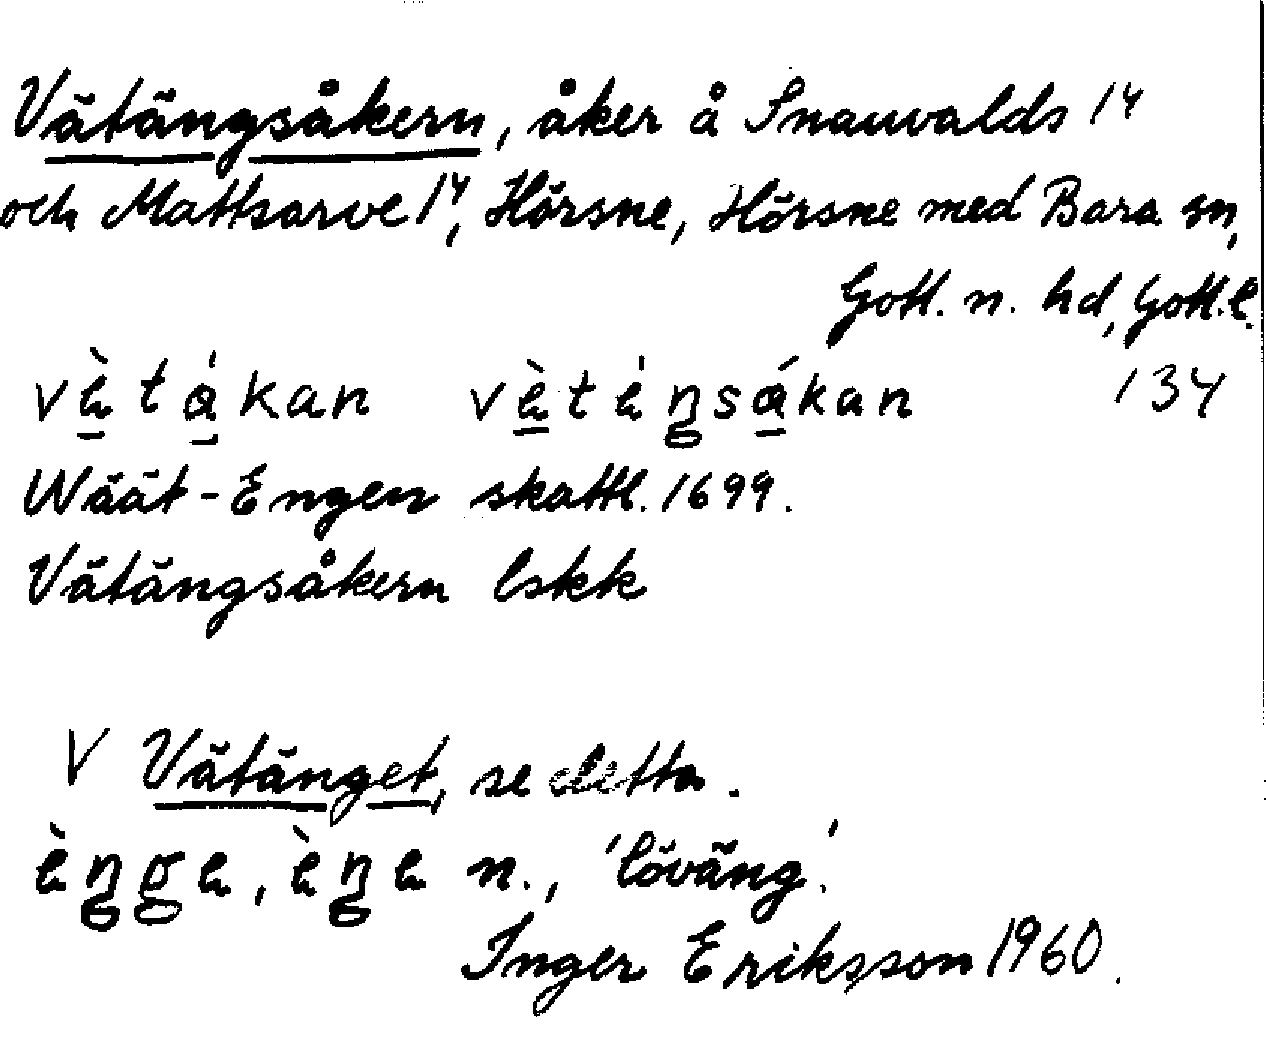 Vätängsåkern, åker å Snauvalds 1⁴
och Mattsarve 1⁴, Hörsne, Hörsne med Bara sn,
Gotl. n. hd, Gotl. l.
vè̠tá̠kan vè̠téŋsá̠kan 134
Wäät-Engen skattl. 1699.
Vätängsåkern lskk
V Vätänget, se detta.
èŋge, èŋe n., 'löväng'.
Inger Eriksson 1960.